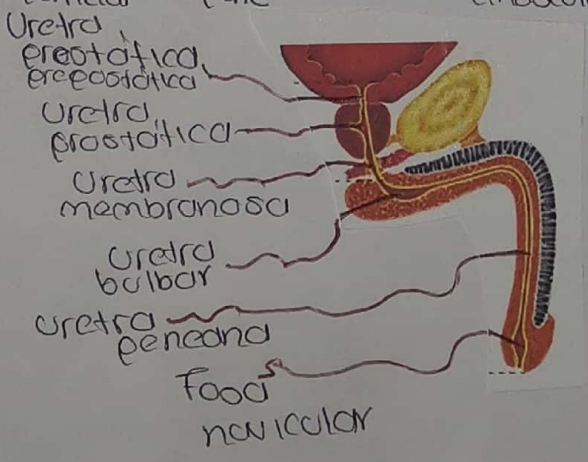 Uretra
preostática
preprostática
Uretra
prostática
Uretra
membranosa
Uretra
bulbar
uretra
peneana
Fosa
navicular